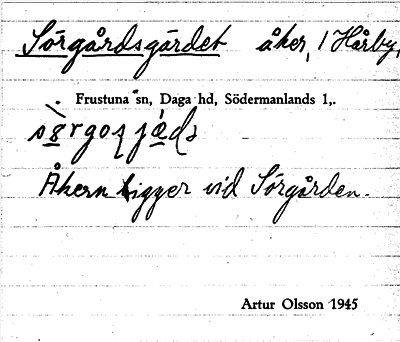 Sörgårdsgärdet åker, 1 Hårby,
Frustuna sn, Daga hd, Södermanlands l,.
Åkern ligger vid Sörgården.
Artur Olsson 1945